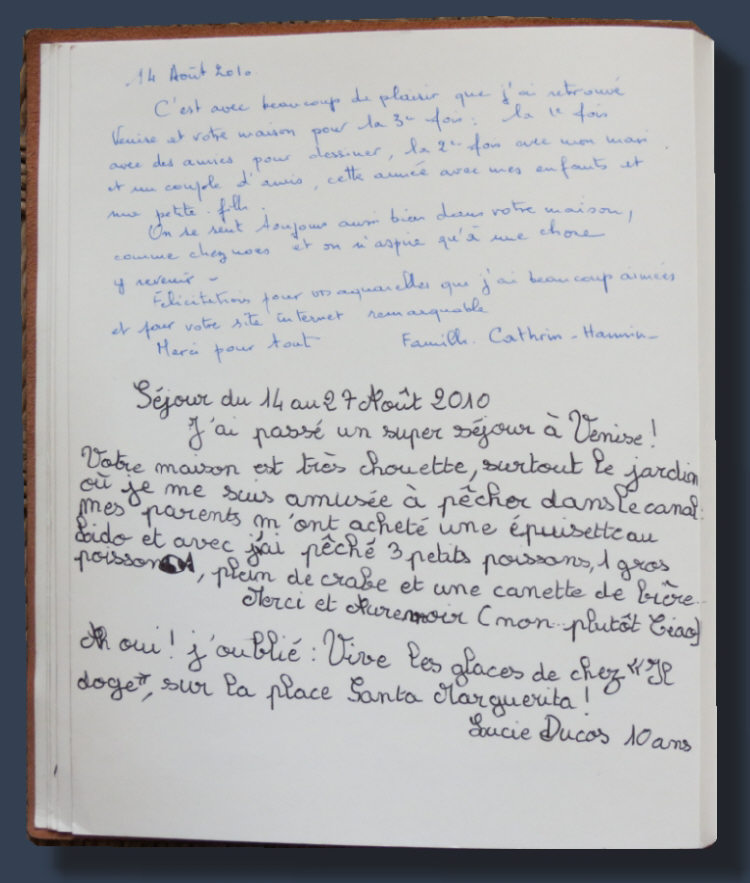 14 Août 2010
C'est avec beaucoup de plaisir que j'ai retrouvé
Venise et votre maison pour la 3e fois : la 1e fois
avec des amies pour dessiner, la 2e fois avec mon mari
et un couple d'amis, cette année avec mes enfants et
ma petite fille.
On se sent toujours aussi bien dans votre maison,
comme chez nous et on n'aspire qu'à une chose
y revenir -
Félicitations pour vos aquarelles que j'ai beaucoup aimées
et pour votre site internet remarquable
Merci pour tout Famille Cathrin -
Séjour du 14 au 27 Août 2010
J'ai passé un super séjour à Venise !
Votre maison est très chouette, surtout le jardin
où je me suis amusée à pêcher dans le canal :
mes parents m'ont acheté une épuisette au
Lido et avec j'ai pêché 3 petits poissons, 1 gros
poisson, plein de crabe et une canette de bière...
Merci et Aurevoir (non plutôt Ciao)
Ah oui ! j'oublié : Vive les glaces de chez "Il
doge", sur la place Santa Marguerita !
Lucie Ducos 10 ans